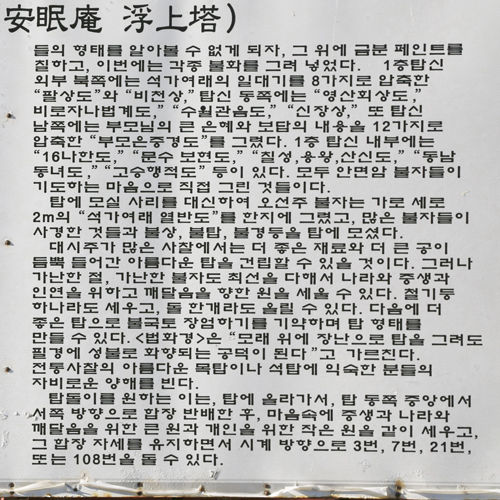 安眠庵 浮上塔)
들의 형태를 알아볼 수 없게 되자, 그 위에 금분 페인트를
칠하고, 이번에는 각종 불화를 그려 넣었다.   1층탑신
외부 북쪽에는 석가여래의 일대기를 8가지로 압축한
“팔상도”와 “비천상,” 탑신 동쪽에는 “영산회상도,”
비로자나법계도,” “수월관음도,” “신장상,” 또 탑신
남쪽에는 부모님의 큰 은혜와 보답의 내용을 12가지로
압축한 “부모은중경도”를 그렸다. 1층 탑신 내부에는
“16나한도,” “문수 보현도,” “칠성,용왕,산신도,” “동남
동녀도,” “고승행적도” 등이 있다. 모두 안면암 불자들이
기도하는 마음으로 직접 그린 것들이다.
탑에 모실 사리를 대신하여 오선주 불자는 가로 세로
2m의 “석가여래 열반도”를 한지에 그렸고, 많은 불자들이
사경한 것들과 불상, 불탑, 불경등을 탑에 모셨다.
대시주가 많은 사찰에서는 더 좋은 재료와 더 큰 공이
듬뿍 들어간 아름다운 탑을 건립할 수 있을 것이다. 그러나
가난한 절, 가난한 불자도 최선을 다해서 나라와 중생과
인연을 위하고 깨달음을 향한 원을 세울 수 있다. 철기둥
하나라도 세우고, 돌 한개라도 올릴 수 있다. 다음에 더
좋은 탑으로 불국토 장엄하기를 기약하며 탑 형태를
만들 수 있다. <법화경>은 “모래 위에 장난으로 탑을 그려도
필경에 성불로 회향되는 공덕이 된다”고 가르친다.
전통사찰의 아름다운 목탑이나 석탑에 익숙한 분들의
자비로운 양해를 빈다.
탑돌이를 원하는 이는, 탑에 올라가서, 탑 동쪽 중앙에서
서쪽 방향으로 합장 반배한 후, 마음속에 중생과 나라와
깨달음을 위한 큰 원과 개인을 위한 작은 원을 같이 세우고,
그 합장 자세를 유지하면서 시계 방향으로 3번, 7번, 21번,
또는 108번을 돌 수 있다.